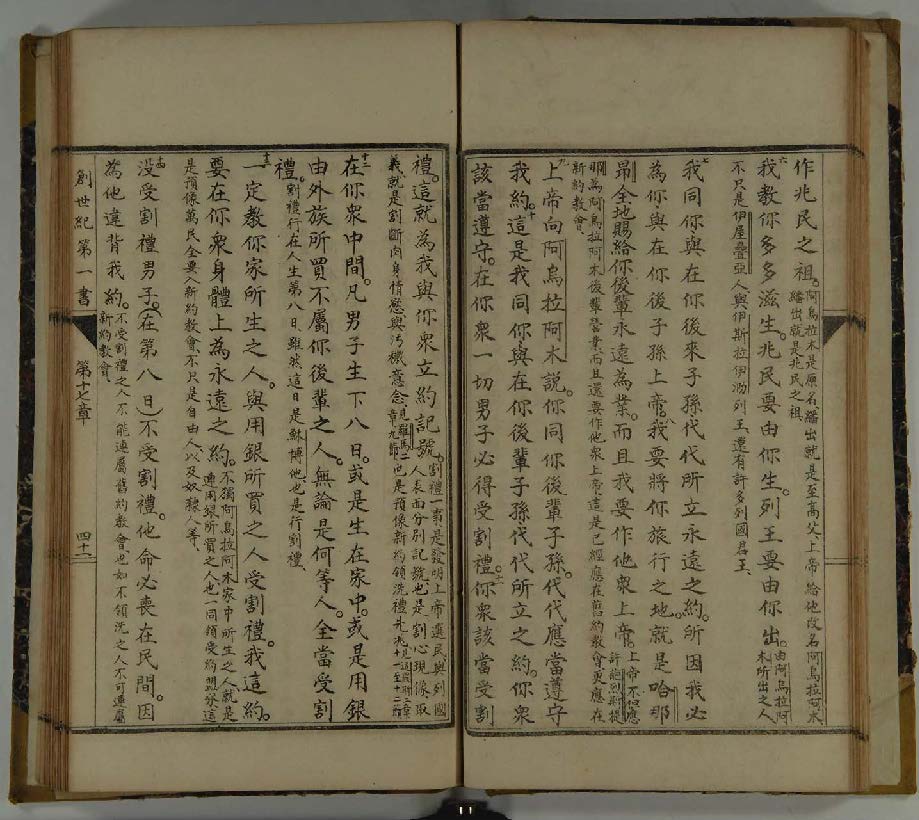 作兆民之祖。阿烏拉木是原名繙出就是至高父、上帝給他改名阿烏拉阿木
繙出就是兆民之祖
六我教你多多滋生。兆民要由你生。列王要由你出。由阿烏拉阿木所出之人
不只是伊屋疊亞人與伊斯拉伊泐列王、還有許多列國君王、
七我同你與在你後來子孫代代所立永遠之約。所因我必
為你與在你後子孫上帝。八我要將你旅行之地。就是哈那
昂全地賜給你後輩永遠為業。而且我要作他衆上帝。上帝不但應許飽烈斯提
那為阿烏拉阿木後輩營業而且還要作他衆上帝這是已經應在舊約教會更應在
新約教會
九上帝向阿烏拉阿木說。你同你後輩子孫。代代應當遵守
我約。十這是我同你與在你後輩子孫代代所立之約。你衆
該當遵守。在你衆一切男子必得受割禮。十一你衆該當受割
禮。這就為我與你衆立約記號。割禮一事是發明上帝選民與列國人表面分別記號也是割心現像取
義就是割斷肉身情慾與污穢意念見羅馬二章九節也是預像新約領洗禮
十二在你衆中間。凡男子生下八日。或是生在家中。或是用銀
由外族所買不屬你後輩之人。無論是何等人。全當受割
禮。割禮行在人生第八日、雖然這日是穌博他、也是行割禮、
十三一定教你家所生之人。與用銀所買之人受割禮。我這約。
要在你衆身體上為永遠之約。不獨阿烏拉阿木家中所生之人就是連用銀所買之人也一同領受約盟家這
是預像萬民全要入新約教會、不只是自由人、以及奴隸人等、
十四沒受割禮男子。(在第八日)不受割禮。他命必喪在民間。因
為他違背我約。不受割禮之人不能連屬舊約教會、也如不領洗之人不可連屬
新約教會
創世紀第一書
第十七章
四十二